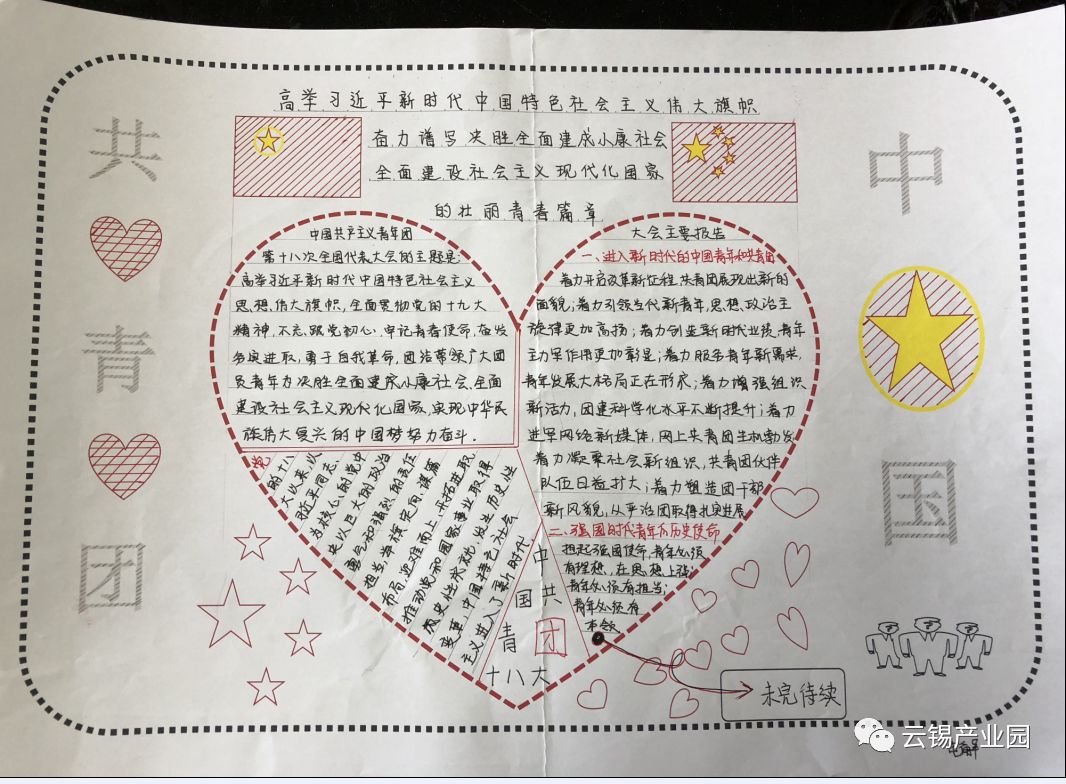 高举习近平新时代中国特色社会主义伟大旗帜
奋力谱写决胜全面建成小康社会
全面建设社会主义现代化国家
的壮丽青春篇章
共青团
中国
中国共产主义青年团
第十八次全国代表大会的主题是:
高举习近平新时代中国特色社会主义
思想伟大旗帜,全面贯彻党的十九大
精神,不忘跟党初心,牢记青春使命,奋发
务实进取,勇于自我革命,团结带领广大团
员青年为决胜全面建成小康社会、全面
建设社会主义现代化国家,实现中华民
族伟大复兴的中国梦努力奋斗.
大会主要报告
一、进入新时代的中国青年和共青团
着力开启改革新征程,共青团展现出新的
面貌;着力引领当代新青年,思想政治主
旋律更加高扬;着力创造新时代业绩,青年
主力军作用更加彰显;着力服务青年新需求,
青年发展大格局正在形成;着力增强组织
新活力,团建科学化水平不断提升;着力
进军网络新媒体,网上共青团生机勃发
着力凝聚社会新组织,共青团伙伴
队伍日益扩大;着力塑造团干部
新风貌,从严治团取得扎实进展
二、强国时代青年的历史使命
担起强国使命,青年必须
有理想,在思想上强;
青年必须有担当;
青年必须有
本领
党
的十八
大以来,以
习近平同志
为核心的党中
央以巨大的政治
勇气和强烈的责任
担当,举旗定向、谋篇
布局、迎难而上、开拓进取,
推动党和国家事业取得
历史性成就、发生历史性
变革,中国特色社会
主义进入了新时代
中国共
青团
十八大
未完待续
云锡产业园